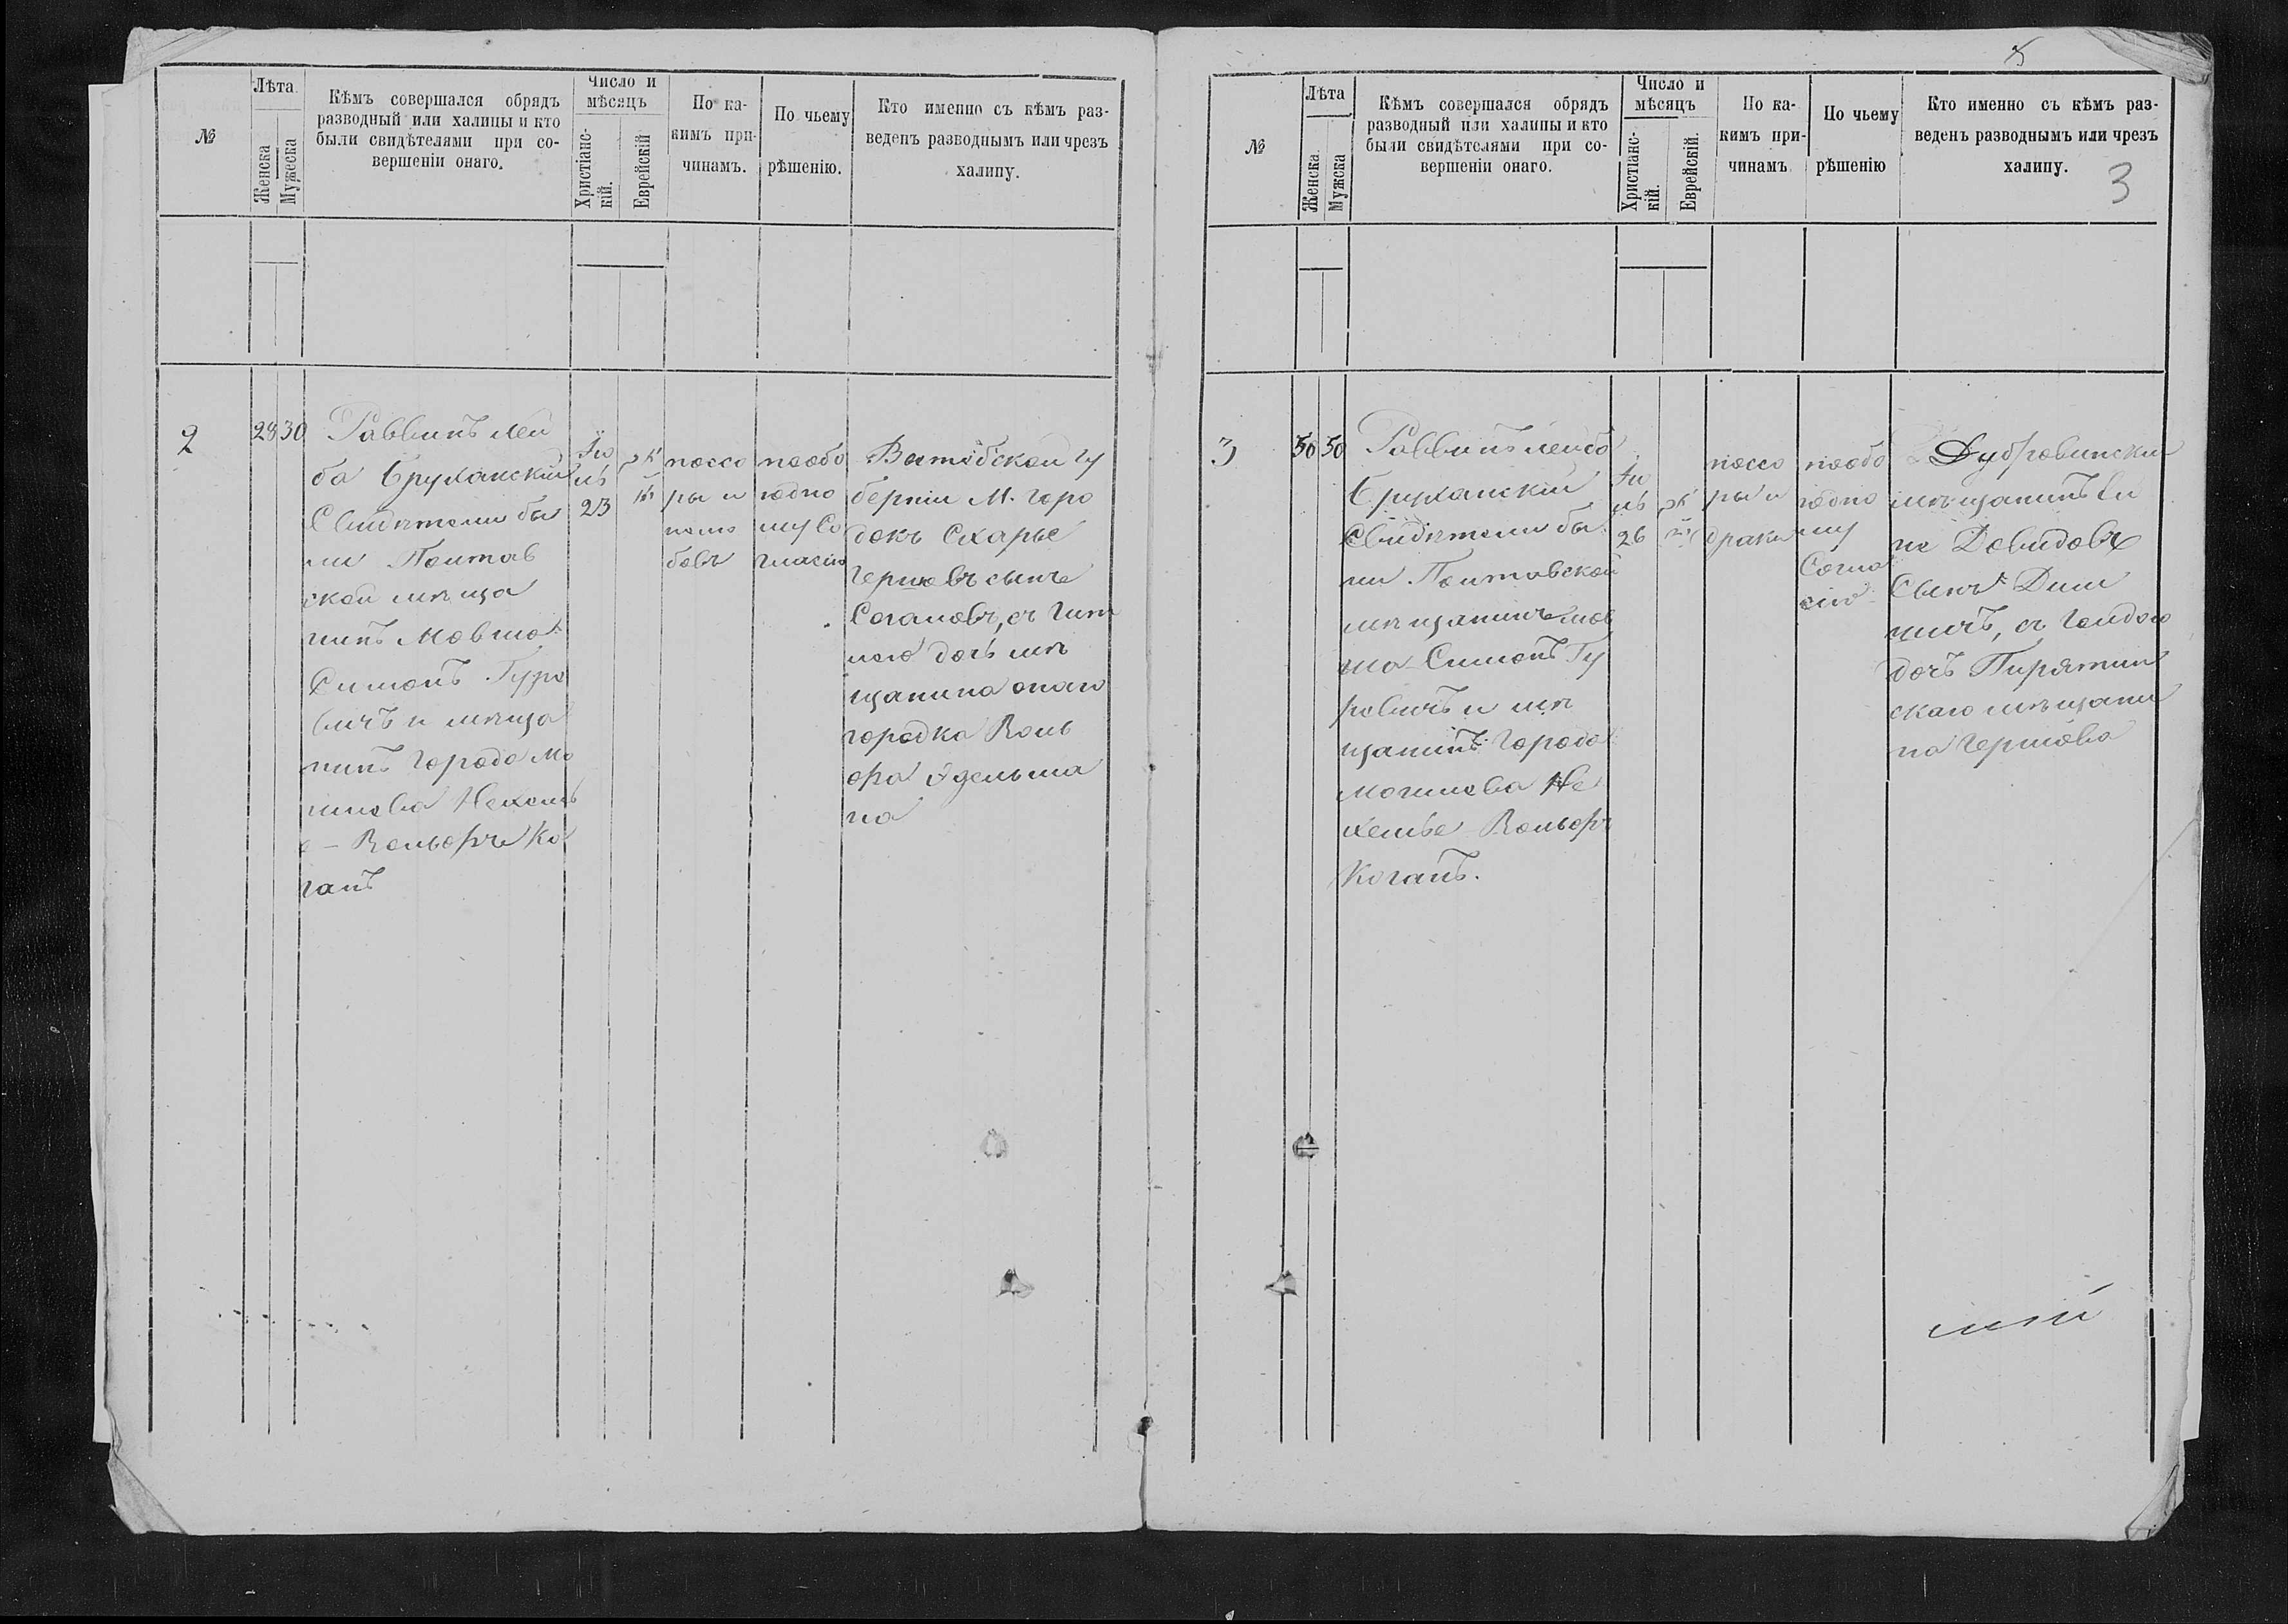 №
Лѣта.
Женска
Мужеска
Кѣмъ совершался обрядъ
разводный или халицы и кто
были свидѣтелями при со-
вершеніи онаго.
Число и
мѣсяцъ
Христіанс-
кій.
Еврейскій
По ка-
кимъ при-
чинамъ.
По чьему
рѣшенію.
Кто именно съ кѣмъ раз-
веденъ разводнымъ или чрезъ
халицу.
2
28 30
Раввинъ Лей
ба Бруханскій
Свидѣтели бы
ли Полтав
ской мѣща
нинъ Мовша
Симонъ Гуре
вичъ и мѣща
нинъ города Мо
гилева
Вольфъ Ко
ганъ
23
по ссо
ры и
по обо
юдно
му Со
гласію
Витебской гу
берніи М. Горо
докъ Схарье
Гершовъ сынъ
съ Гит
лею дочь мѣ
щанина онаго
городка Воль
фа Эдельма
на
№
Лѣта
Женска
Мужска
Кѣмъ совершался обрядъ
разводный или халицы и кто
были свидѣтелями при со-
вершеніи онаго.
Число и
мѣсяцъ
Христіанс-
кій.
Еврейскій.
По ка-
кимъ при-
чинамъ
По чьему
рѣшенію
Кто именно съ кѣмъ раз-
веденъ разводнымъ или чрезъ
халицу.
3
3
50 50
Раввинъ Лейба
Бруханскій
Свидѣтели бы
ли Полтавской
мѣщанинъ Мов
ша Симонъ Гу
ревичъ и мѣ
щанинъ города
Могилева Не
хемье Вольфъ
Коганъ.
26
по ссо
ры и
драки
по обо
юдно
му
Согла
сію
Дубровинскій
мѣщанинъ
Довидовъ
Сынъ
съ
дочь Пирятин
скаго мѣщани
на Гершова